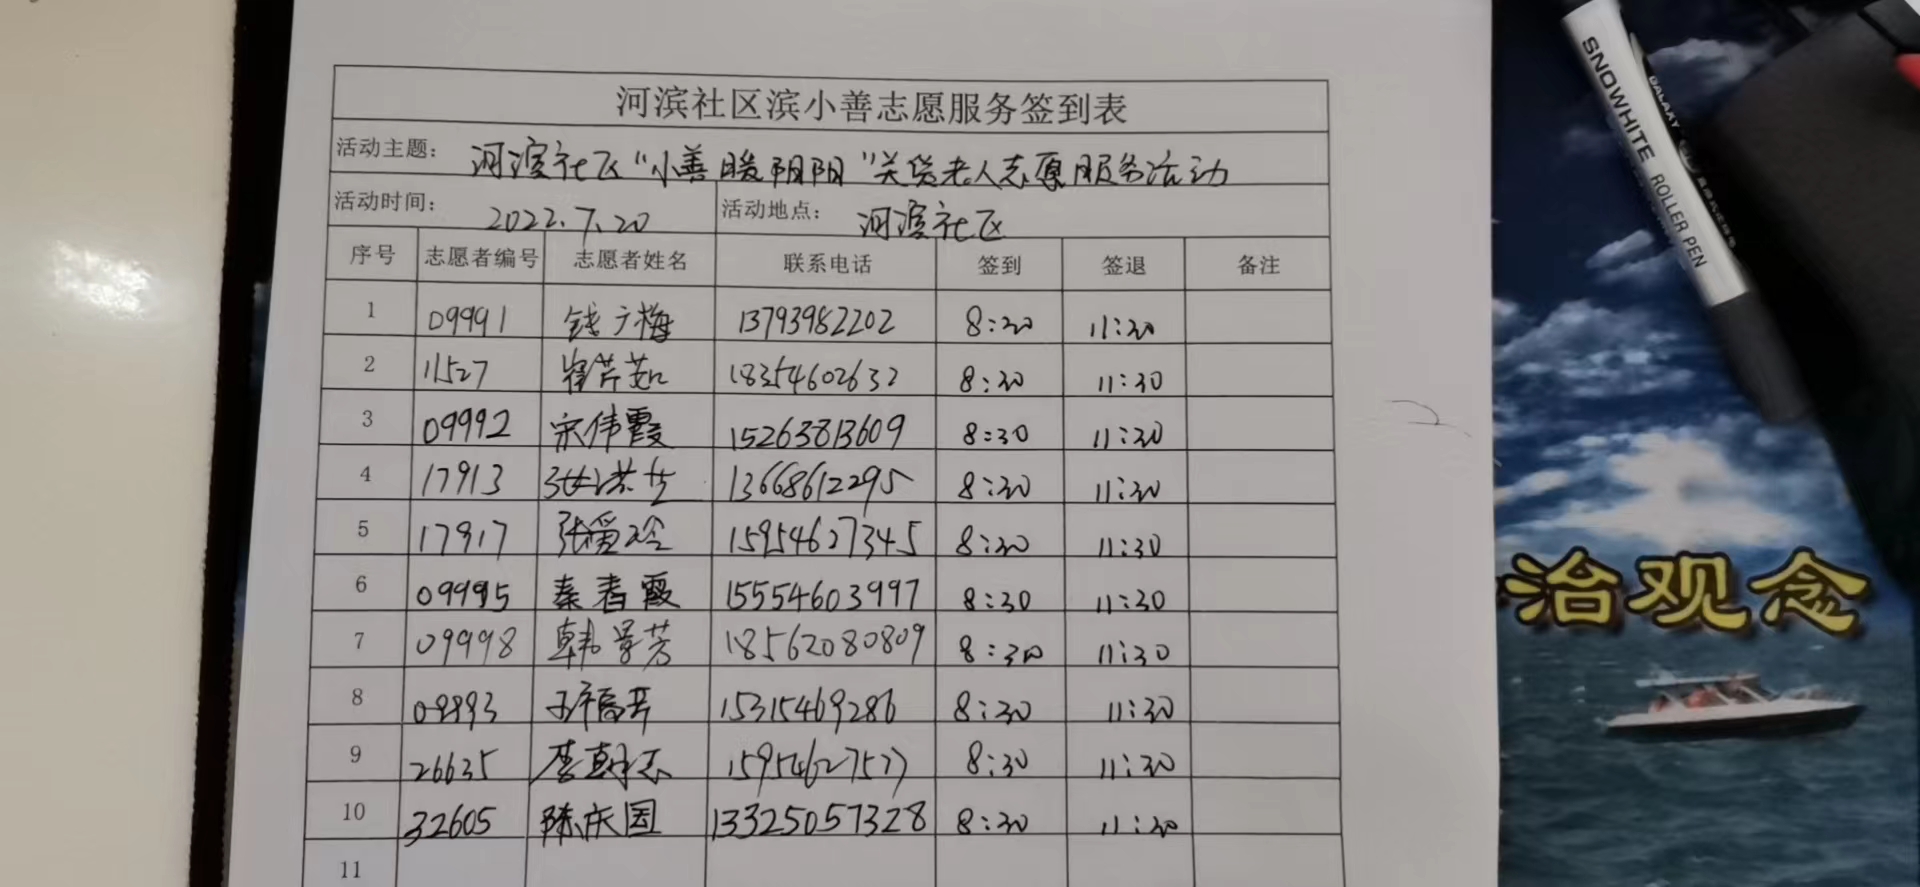 河滨社区滨小善志愿服务签到表
活动主题: 河滨社区"小善暖阴阳"关爱老人志愿服务活动
活动时间: 2022.7.20 活动地点: 河滨社区
序号 志愿者编号 志愿者姓名 联系电话 签到 签退 备注
1 09991 钱广梅 13793982202 8:30 11:30
2 11527 崔芹茹 18354602632 8:30 11:30
3 09992 宋伟霞 15263813609 8:30 11:30
4 17913 13668612295 8:30 11:30
5 17917 张爱玲 15954627345 8:30 11:30
6 09995 秦春霞 15554603997 8:30 11:30
7 09998 韩景芳 18562080809 8:30 11:30
8 09993 15315469286 8:30 11:30
9 26635 15954627577 8:30 11:30
10 32605 陈庆国 13325057328 8:30 11:30
11
SNOWHITE ROLLER PEN
GALAXY
治观念